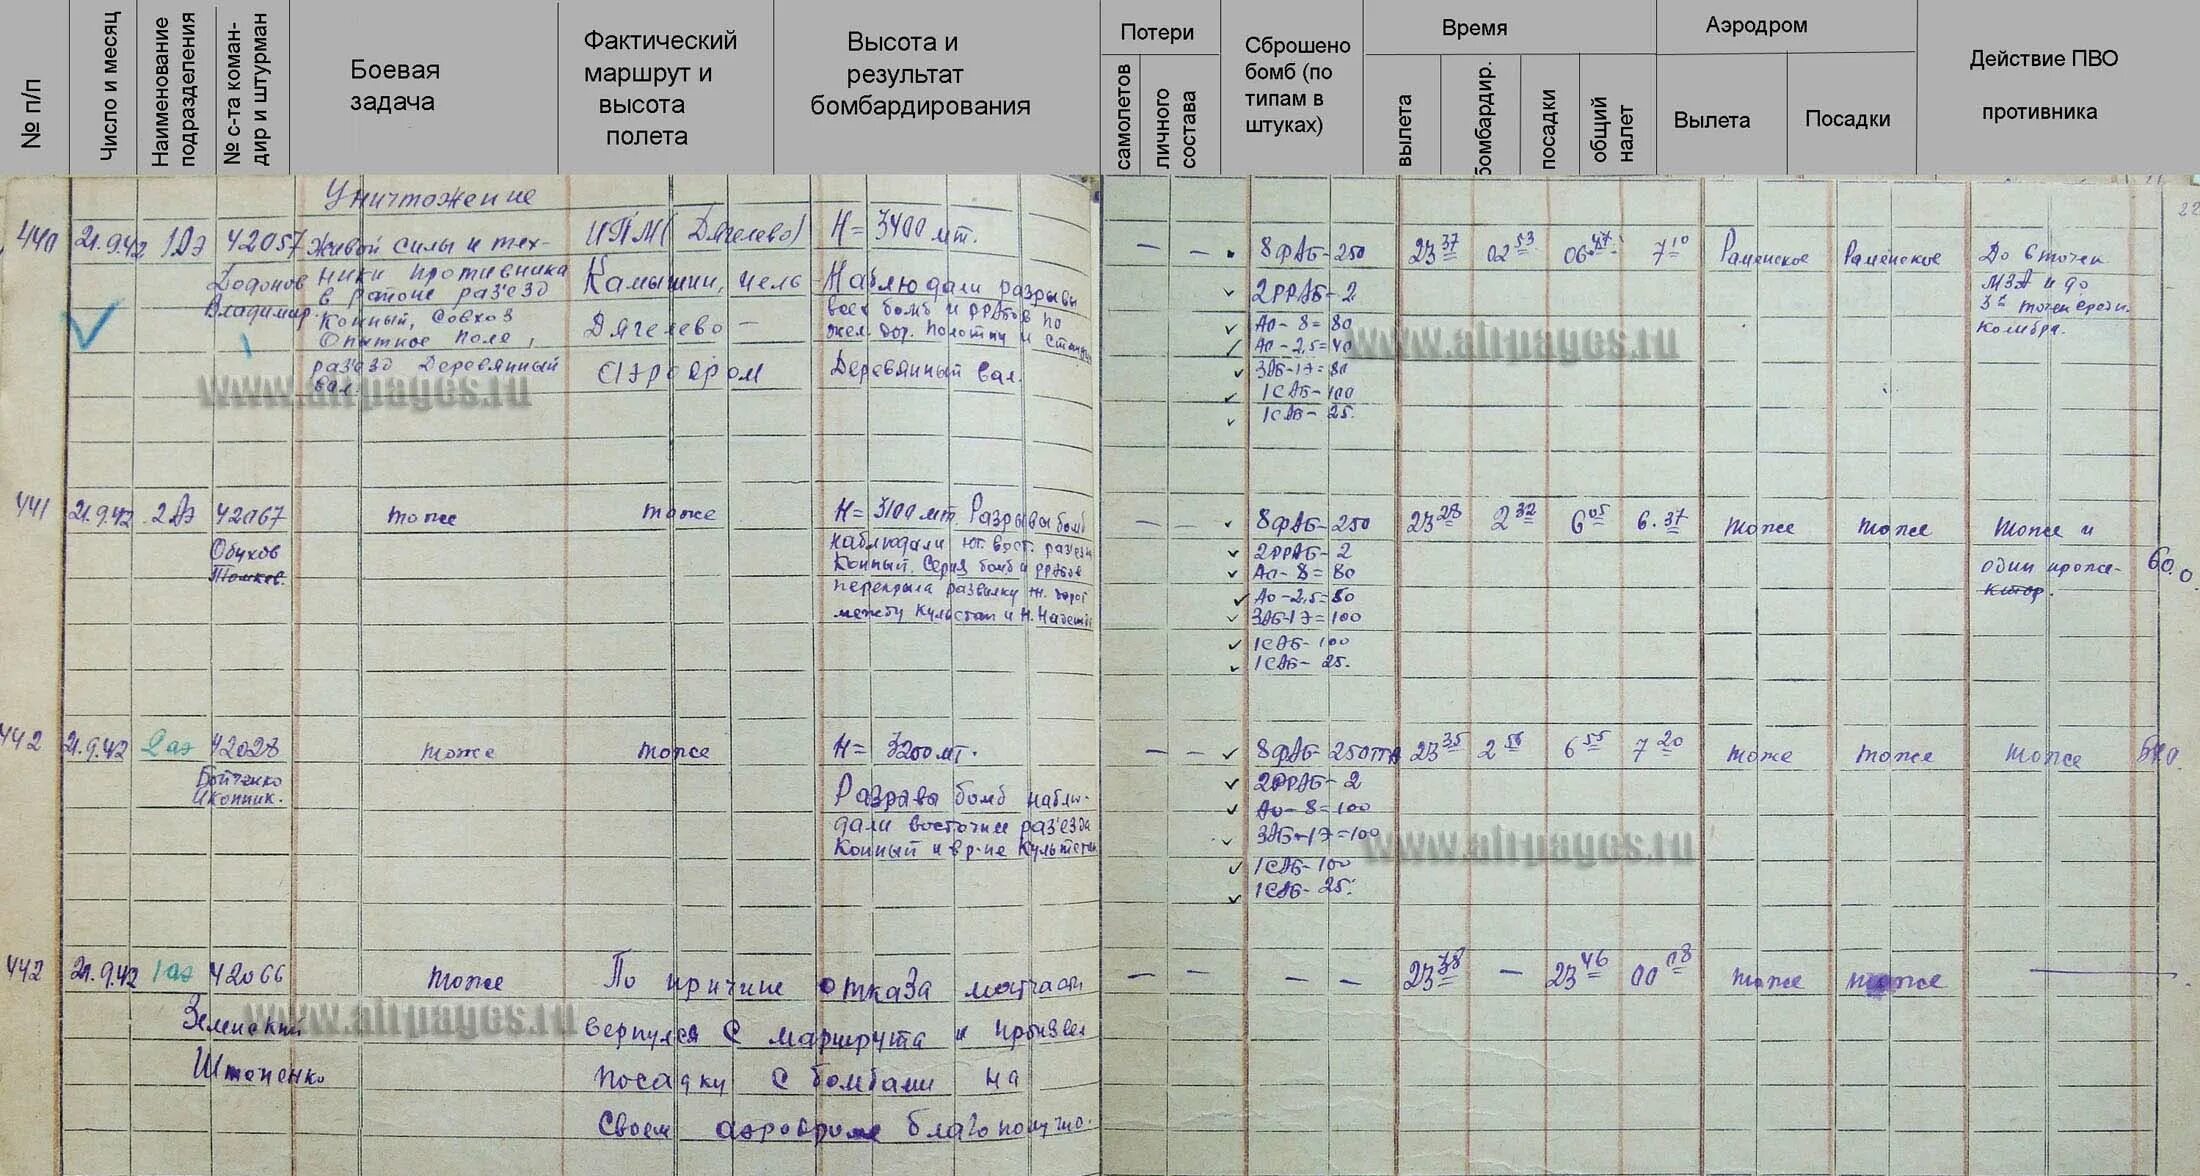 № п/п
Число и месяц
Наименование подразделения
№ с-та коман-
дир и штурман
Боевая
задача
Фактический
маршрут и
высота
полета
Высота и
результат
бомбардирования
Потери
самолетов
личного состава
Сброшено
бомб (по
типам в
штуках)
Время
вылета
бомбардир.
посадки
общий налет
Аэродром
Вылета
Посадки
Действие ПВО
противника
22
440 21.9.42 1аэ 42057
Додонов
Владимир.
Уничтожение
живой силы и тех-
ники противника
в районе раз'езд
Конный, совхоз
Опытное поле,
раз'езд Деревянный
вал
ИПМ (Дягелево)
Камышин, цель
Дягелево –
аэродром
H = 3400 мт.
Наблюдали разрывы
всех бомб и РРАБов по
жел. дор. полотну и станции
Деревянный вал.
– –
8 ФАБ-250
2РРАБ-2
Ао-8=80
Ао-2,5=40
ЗАБ-17=80
1САБ-100
1САБ-25.
23 37 02 53 06 47 7 10
Раменское Раменское
До 6 точек
МЗА и до
3х точек средн.
калибра.
441 21.9.42 2аэ 42067
Обухов
Томкев.
тоже тоже
H = 3100 мт. Разрывы бомб
наблюдали юг. вост. раз'езд
Конный. Серия бомб и РРАБов
перекрыла развилку ж. дорог
между Культстан и Н. Надежд
– –
8ФАБ-250
2РРАБ-2
Ао-8=80
Ао-2,5=80
ЗАБ-17=100
1САБ-100
1САБ-25.
23 28 2 32 6 05 6.37
тоже тоже
тоже и
один проже-
ктор.
442 21.9.42 2аэ 42028
Бойченко
Иконник.
тоже тоже
H = 3200 мт.
Разрывы бомб наблю-
дали восточнее раз'езда
Конный и в р-не Культстан
– –
8ФАБ-250
2РРАБ-2
Ао-8=100
ЗАБ-17=100
1САБ-100
1САБ-25.
23 35 2 56 6 55 7 20
тоже тоже тоже
442 21.9.42 1аэ 42066
Земский
Штепенко
тоже
По причине отказа матчасти
вернулся с маршрута и произвел
посадку с бомбами на
своем аэродроме благополучно.
– – – –
23 38 – 23 46 00 08
тоже тоже –
www.airpages.ru
www.airpages.ru
www.airpages.ru
www.airpages.ru